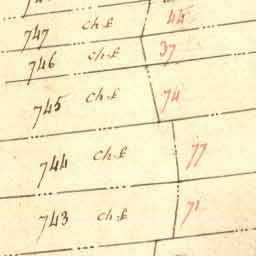 747 ch.£ 44
746 ch.£ 37
745 ch.£ 74
744 ch.£ 77
743 ch.£ 71